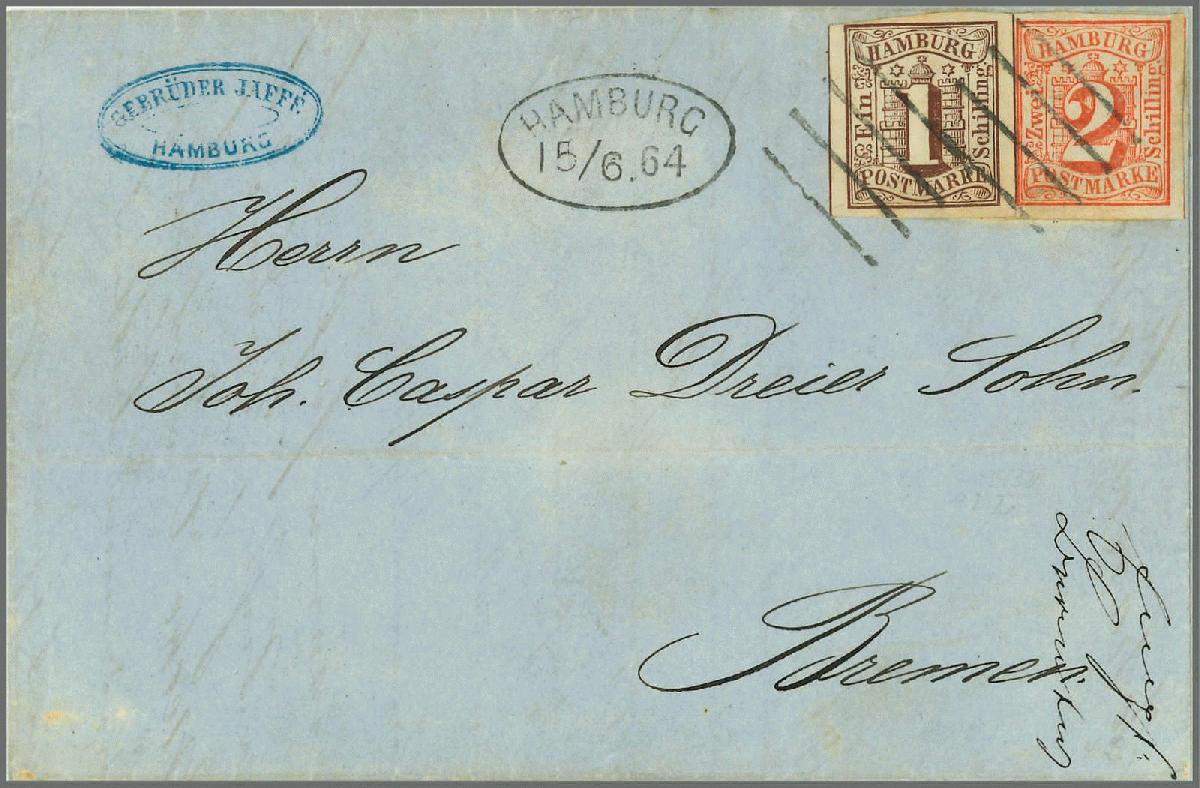 GEBRÜDER JAFFÉ
HAMBURG
HAMBURG
15/6.64
HAMBURG
Ein
1
Schilling
POSTMARKE
HAMBURG
Zwei
2
Schilling
POSTMARKE
Herrn
Joh. Caspar Dreier Sohn.
Bremen